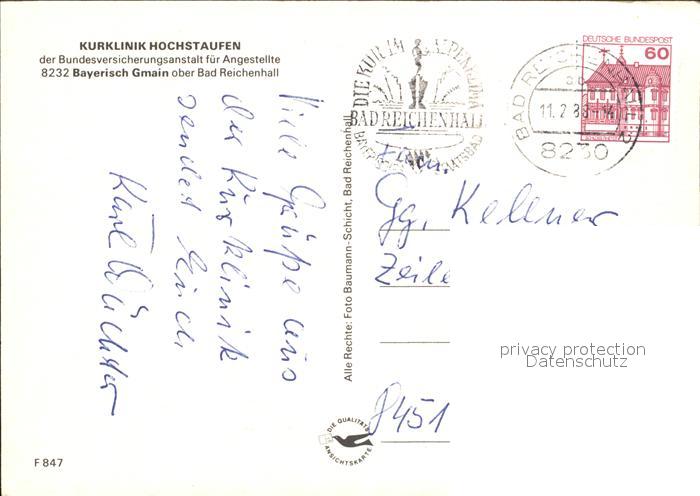 KURKLINIK HOCHSTAUFEN
der Bundesversicherungsanstalt für Angestellte
8232 Bayerisch Gmain ober Bad Reichenhall
Viele Grüße aus
der Kurklinik
sendet Euch
Karl Wächter
DIE KUR IM ALPENKLIMA
BAD REICHENHALL
BAYER. STAATSBAD
BAD REICHENHALL 2
11.2.88
8230
DEUTSCHE BUNDESPOST
60
Fam.
Gg. Kellner
Zeile
8451
privacy protection
Datenschutz
Alle Rechte: Foto Baumann-Schicht, Bad Reichenhall
DIE QUALITÄTS
ANSICHTSKARTE
F 847